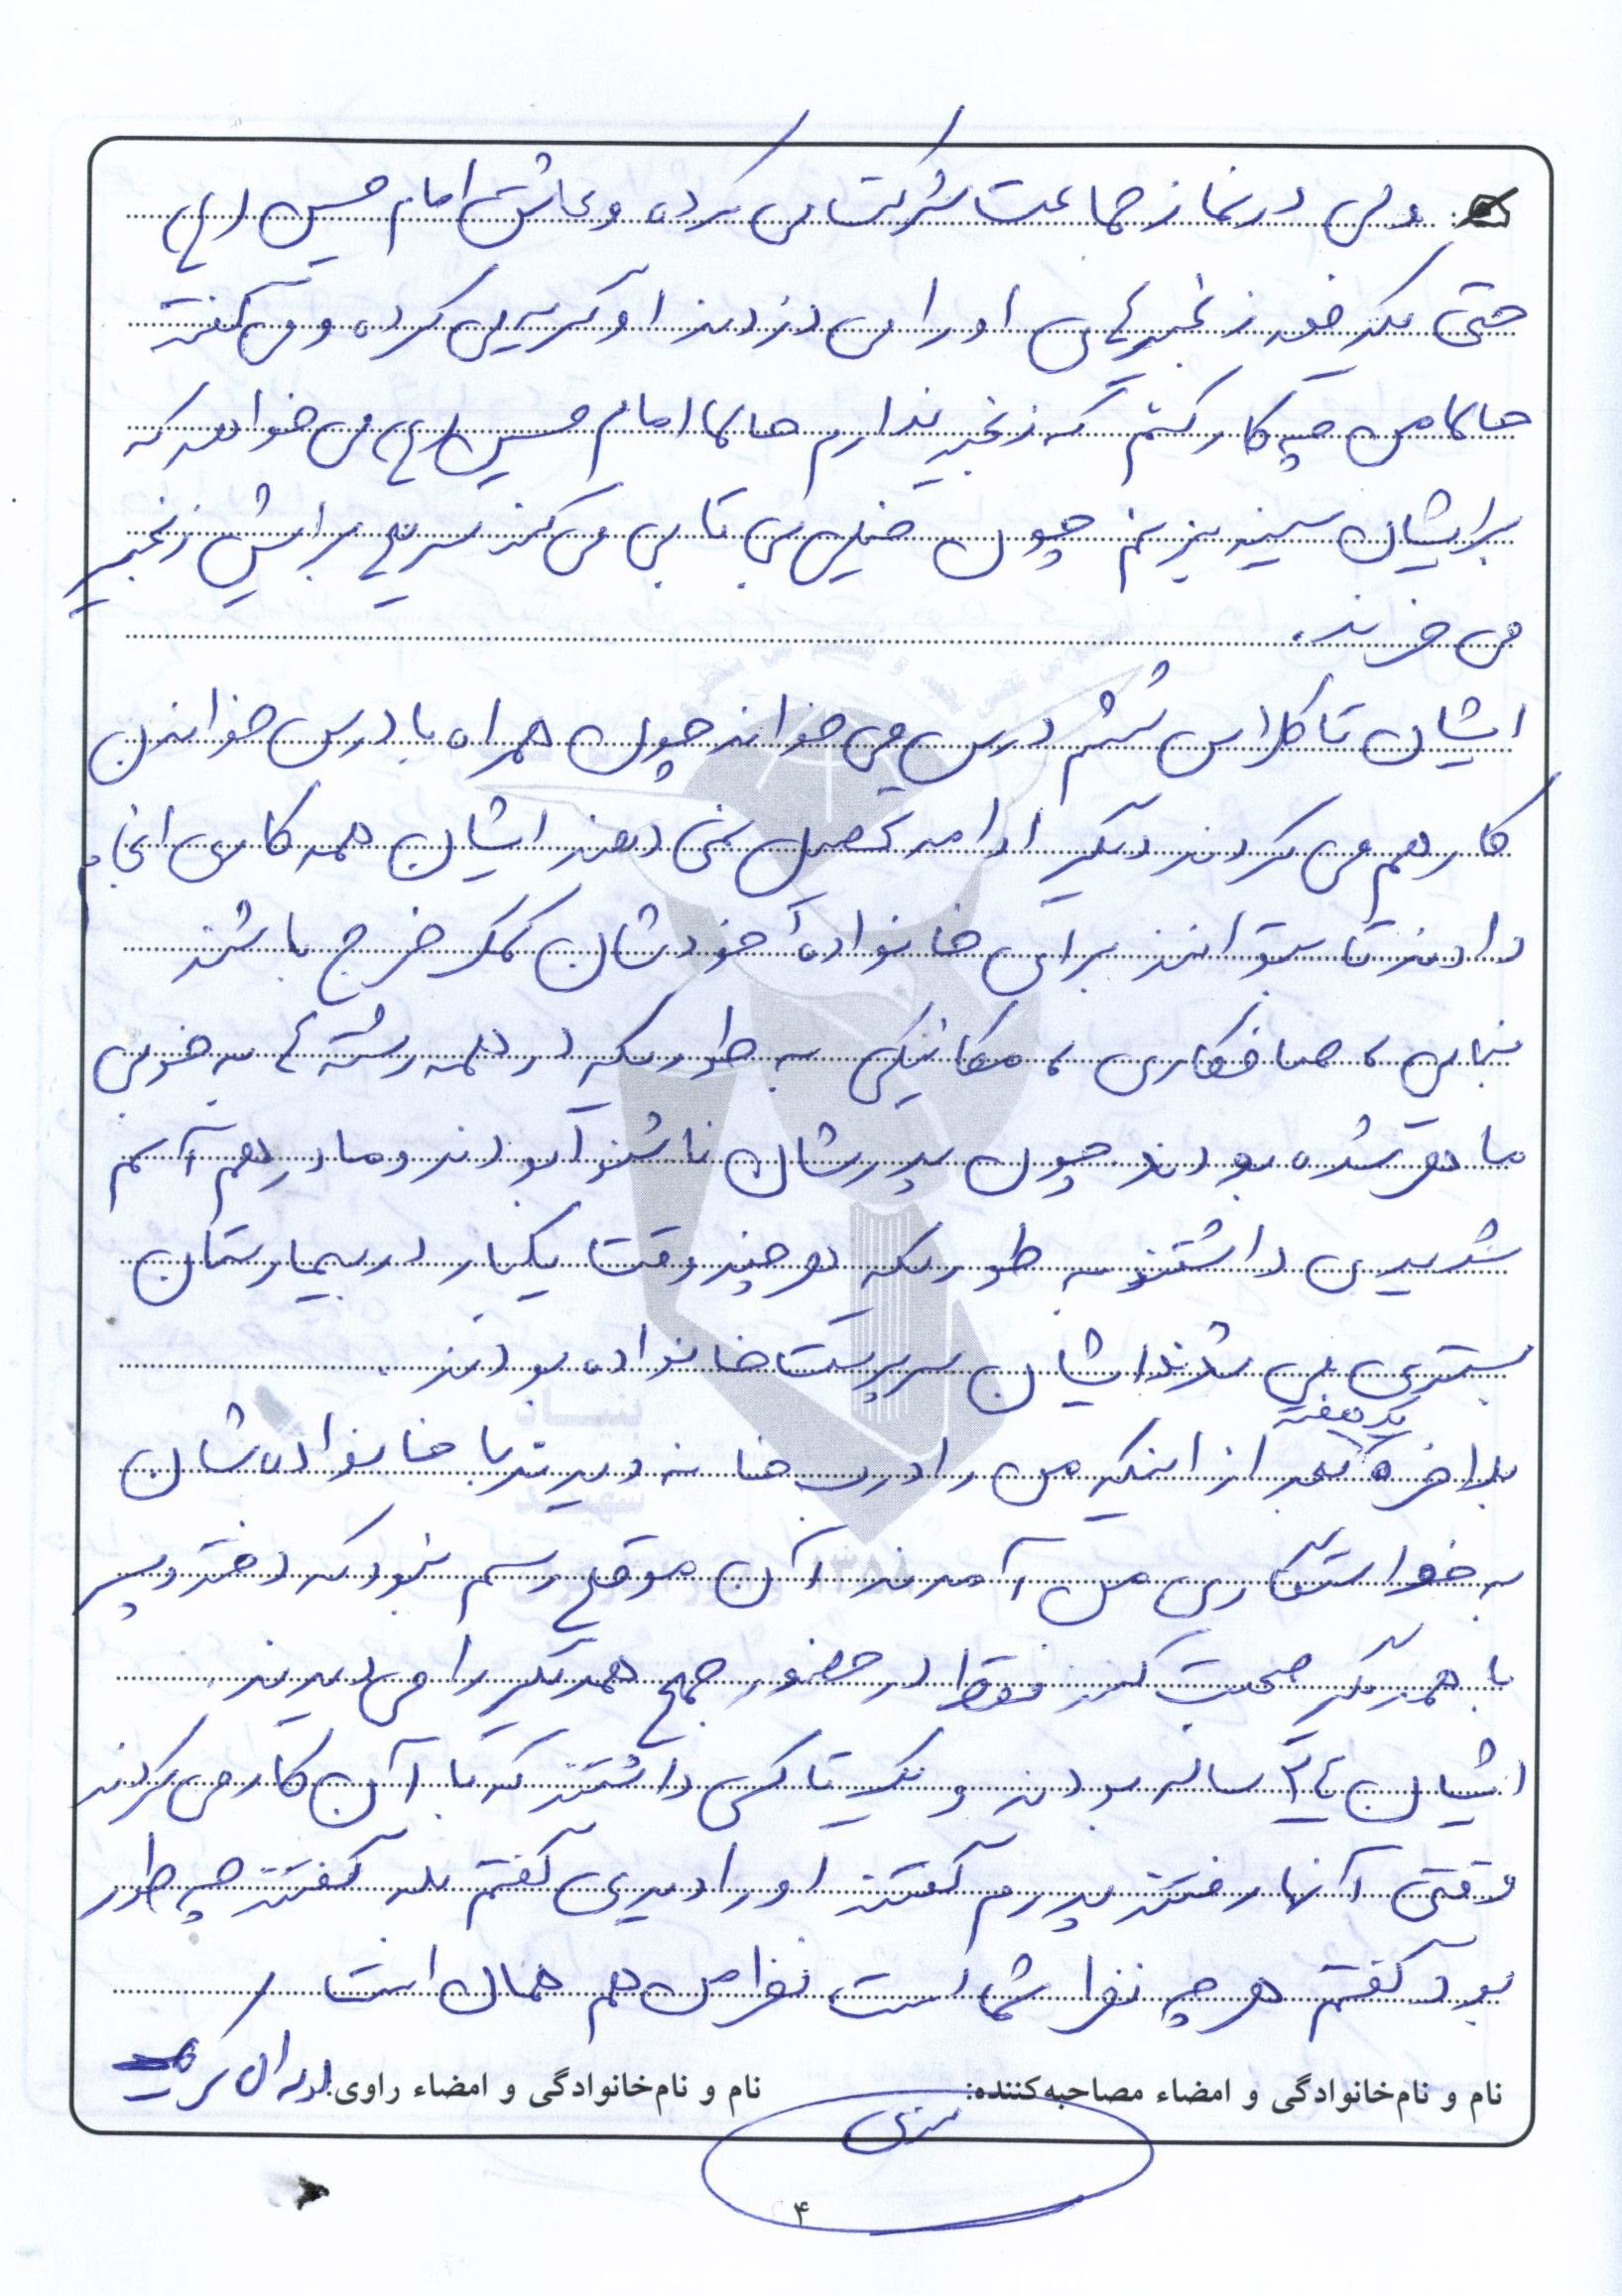 ولی در نماز جماعت شرکت می کرده و عاشق امام حسین (ع)
حتی یکدفعه زنجیرهای او را می دزدند او گریه می کرده و می گفته
حالا من چه کار کنم که زنجیر ندارم حالا امام حسین (ع) می خواهد که
برایشان سینه بزنم چون خیلی بی تابی می کند سریع برایش زنجیر
می خرند.
ایشان تا کلاس ششم درس می خواند چون همراه با درس خواندن
کار هم می کردند دیگر ادامه تحصیل نمی دهند ایشان همه کاری انجام
دادند تا بتوانند برای خانوادهٔ خودشان کمک خرج باشند
بنایی، صافکاری، مکانیکی به طوریکه در همه رشته ها به خوبی
ماهر شده بودند چون پدرشان ناشنوا بودند و مادر هم آسم
شدیدی داشتند به طوریکه هر چند وقت یکبار در بیمارستان
بستری می شدند ایشان سرپرست خانواده بودند.
یک هفته
بلاخره بعد از اینکه من را درب خانه دیدند با خانواده شان
به خواستگاری من آمدند آن موقع رسم نبود که دختر و پسر
با همدیگر صحبت کنند فقط در حضور جمع همدیگر را می دیدند.
ایشان ۲٤ ساله بودند و یک تاکسی داشتند که با آن کار می کردند
وقتی آنها رفتند پدرم گفتند او را دیدی گفتم بله گفتند چه طور
بود گفتم هر چه نظر شما است نظر من هم همان است
نام و نام‌خانوادگی و امضاء مصاحبه‌کننده: نام و نام‌خانوادگی و امضاء راوی:
۴